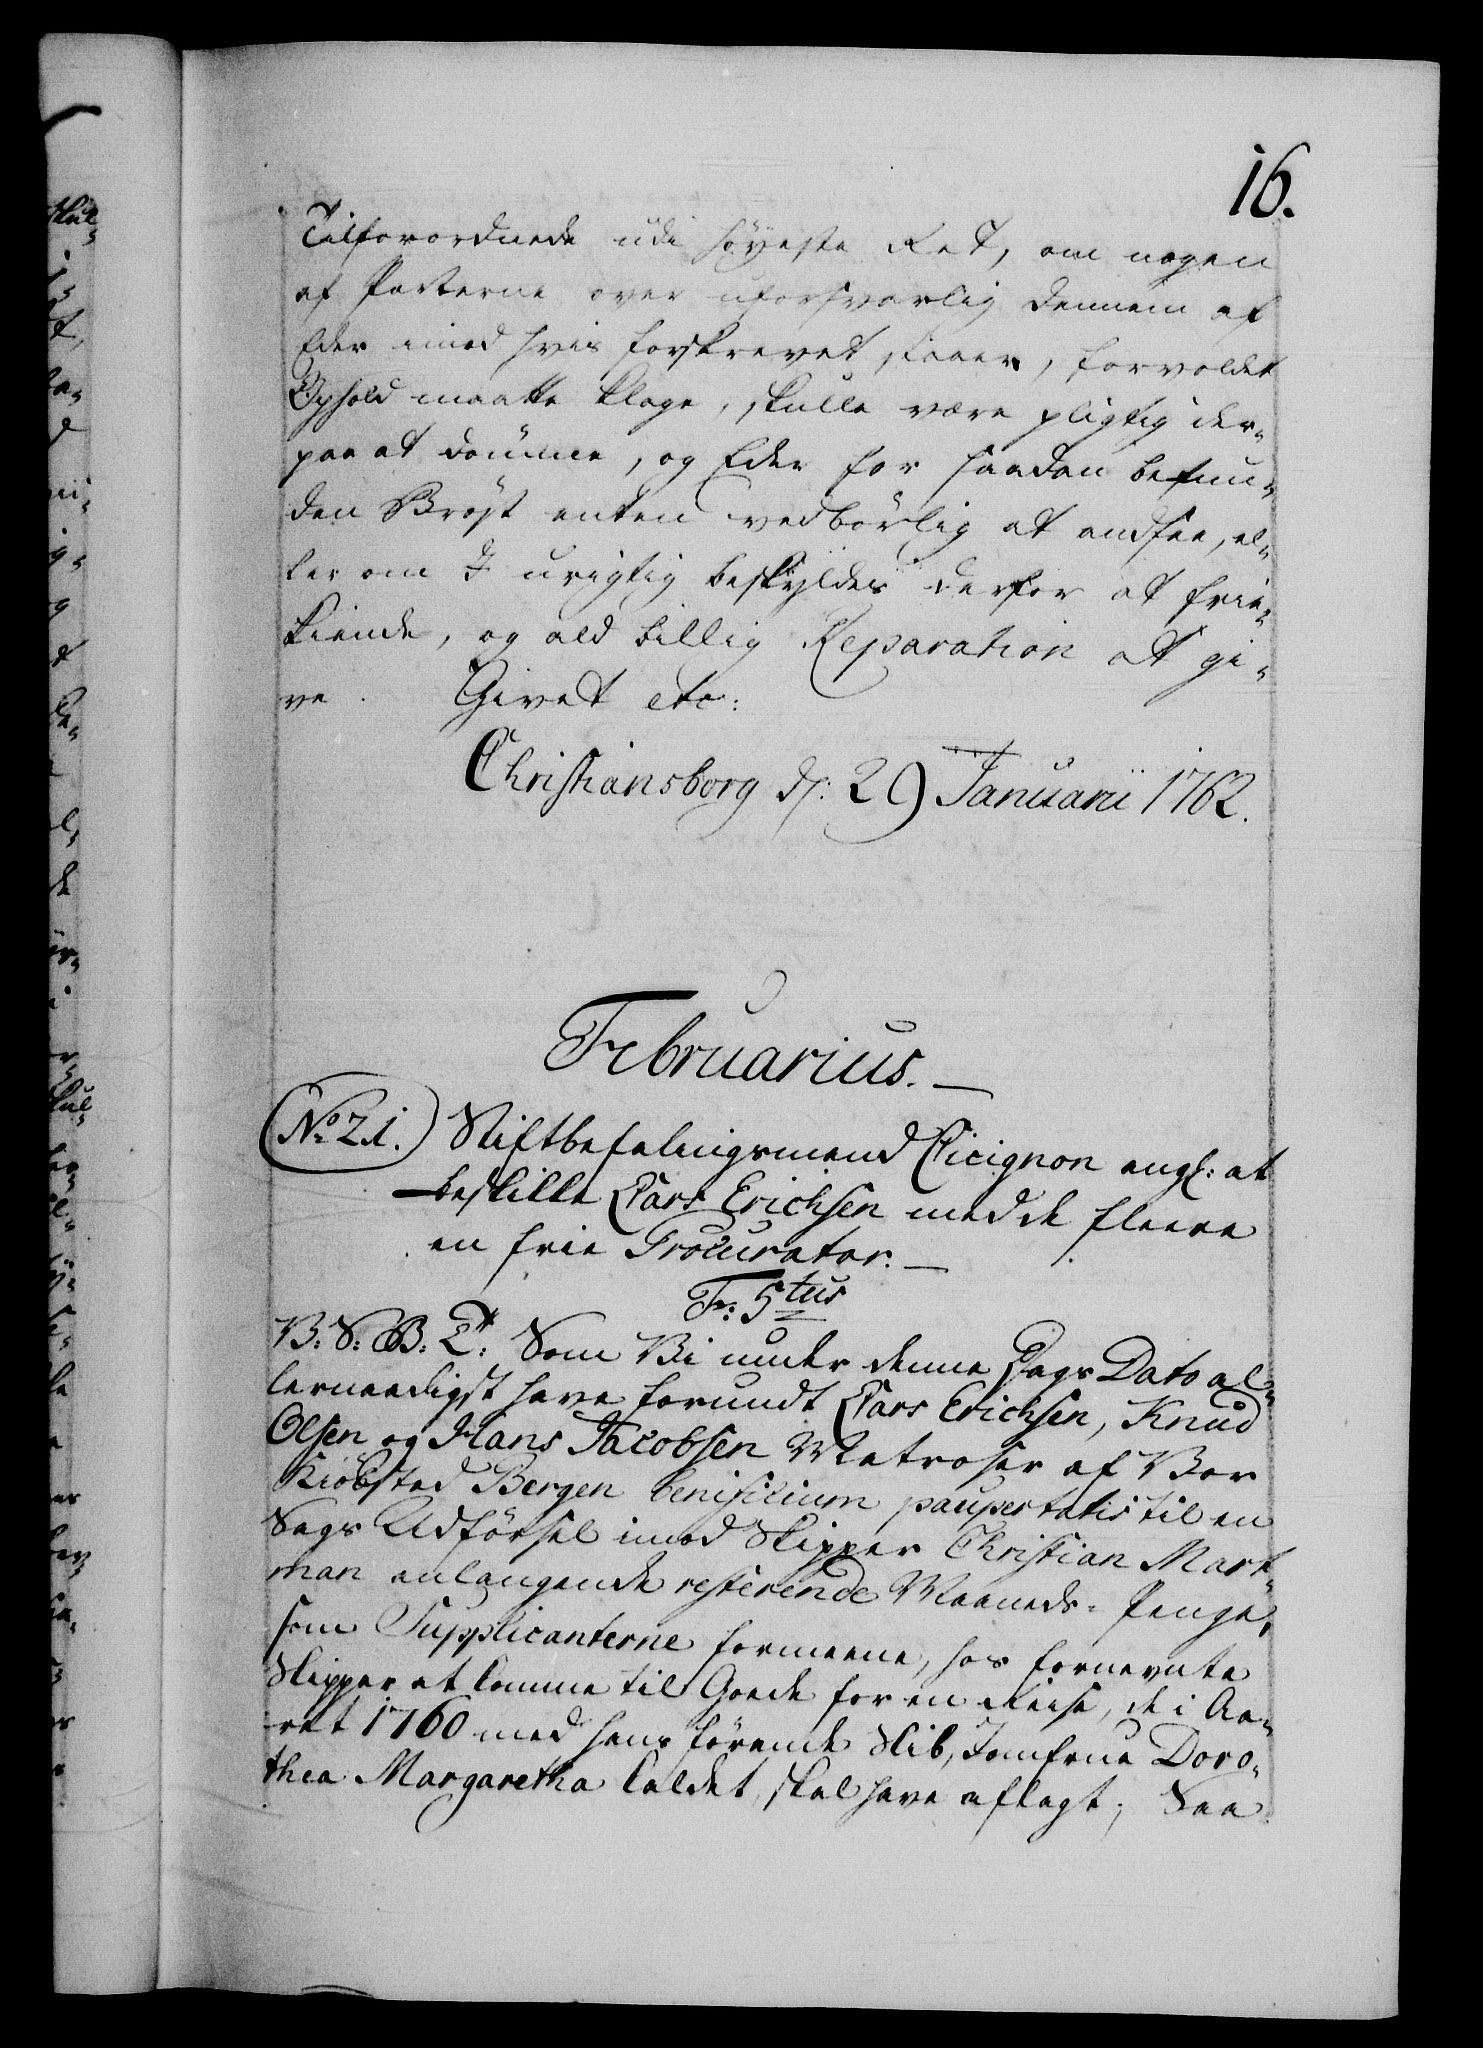 16.
Tilforordnede udi Høyeste Ret, om nogen
af Parterne over uforsvarlig dennem af
Eder imod hvis forskrevet staaer, forvoldet
Ophold maatte klage, skulle være pligtig der-
paa at dømme, og Eder for saadan befun-
den Brøst enten vedbørlig at andsee, el-
ler om I urigtig beskyldes derfor at frie-
kiende, og ald billig Reparation at gi-
ve. Givet etc:
Christiansborg d: 29 Januarii 1762.
Februarius.
No 21. Stiftbefalingsmand Cicignon angl: at
beskikke Lars Erichsen med de fleere
en frie Procurator.
Fr: 5tus
V: S: G: B: T: Som Vi under denne Dags Dato al-
lernaadigst have forundt Lars Erichsen, Knud
Olsen og Hans Jacobsen Matroser af Vor
Kiøbstad Bergen benificium paupertatis til en
Sags Udførsel imod Skipper Christian Mart-
man anlangende resterende Maaneds-Penge,
som Supplicanterne formeene, hos fornevnte
Skipper at komme til Goede for en Reise, de i Aa-
ret 1760 med hans førende Skib, Jomfrue Doro-
thea Margaretha kaldet, skal have aflagt; Saa